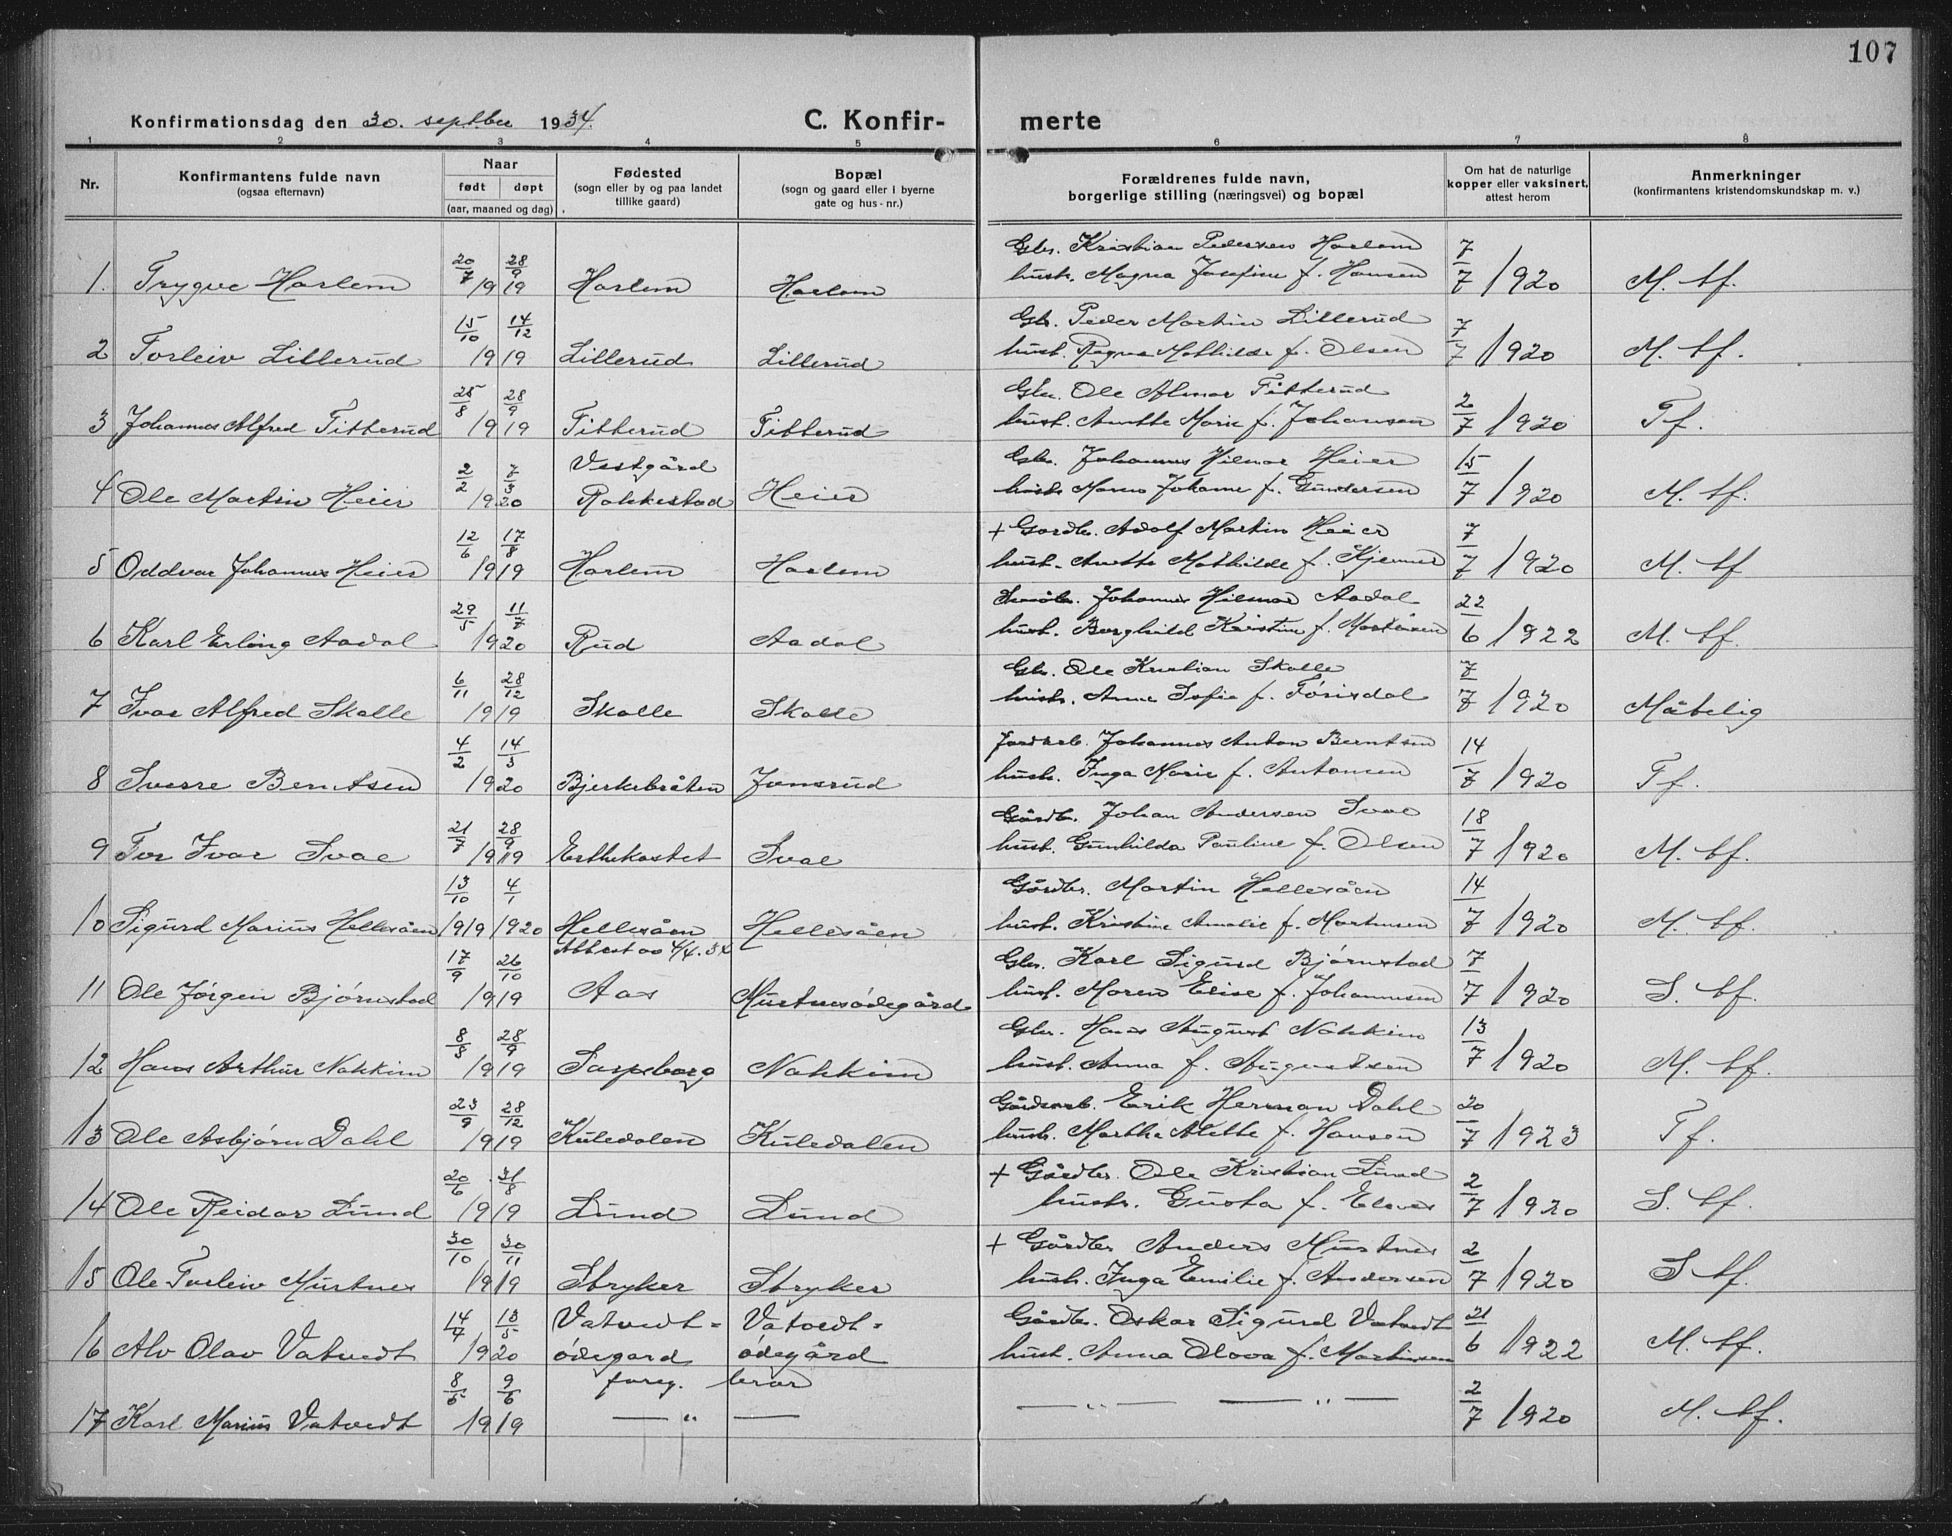 107
Konfirmationsdag den 30. septbr 1934.
C. Konfir- merte
1 2 3 4 5 6 7 8
Nr.
Konfirmantens fulde navn
(ogsaa efternavn)
Naar
født døpt
(aar, maaned og dag)
Fødested
(sogn eller by og paa landet
tillike gaard)
Bopæl
(sogn og gaard eller i byerne
gate og hus-nr.)
Forældrenes fulde navn,
borgerlige stilling (næringsvei) og bopæl
Om hat de naturlige
kopper eller vaksinert,
attest herom
Anmerkninger
(konfirmantens kristendomskundskap m. v.)
20/7 28/9 Gbr. Kristian Pedersen Harlem 7
1. Trygve Harlem 1919 Harlem Harlem hustr. Magna Josefine f. Hansen 7/1920 M. tf.
15/10 14/12 Gb. Peder Martin Lillerud 7
2 Torleiv Lillerud 1919 Lillerud Lillerud hust. Ragna Mathilde f. Olsen 7/1920 M. tf.
25/8 28/9 Gbr. Ole Almar Titterud 2
3 Johannes Alfred Titterud 1919 Titterud Titterud hust. Anette Marie f. Johansen 7/1920 Tf.
2/2 7/3 Vestgård Gbr. Johannes Hilmar Heier 15
4 Ole Martin Heier 1920 Rakkestad Heier hustr. Maren Johanne f. Gundersen 7/1920 M. tf.
12/6 17/8 + Gardbr. Adolf Martin Heier 7
5 Oddvar Johannes Heier 1919 Harlem Harlem hust. Anette Mathilde f. Kjenner 7/1920 M. tf
29/5 11/7 Småbr. Johannes Hilmar Aadal 22
6 Karl Erling Aadal 1920 Rud Aadal hust. Borghild Kristine f. Martinsen 6/1922 M. tf.
6/11 28/12 Gbr. Ole Kristian Skolle 7
7 Ivar Alfred Skolle 1919 Skolle Skolle hustr. Anne Sofie f. Tørisdal 7/1920 Måtelig
4/2 14/3 Jordarb. Johannes Anton Berntsen 14
8 Sverre Berntsen 1920 Bjerkebråten Jonsrud hustr. Inga Marie f. Antonsen 7/1920 Tf.
21/7 28/9 Gårdbr. Johan Andersen Svae 18
9 Tor Ivar Svae 1919 Ertekastet Svae hust. Gunhilda Pauline f. Olsen 7/1920 M. tf.
13/10 4/1 Gårdbr. Martin Hellesåen 14
10 Sigurd Marius Hellesåen 1919 1920 Hellesåen Hellesåen hust. Kristine Amalie f. Martinsen 7/1920 M. tf.
17/9 26/10 4/4.34 Gbr. Karl Sigurd Bjørnstad 7
11 Ole Jørgen Bjørnstad 1919 Aas Murtnesødegård hust. Maren Elise f. Johannesen 7/1920 S. tf.
8/8 28/9 Gbr. Hans August Nakkim 13
12 Hans Arthur Nakkim 1919 Sarpsborg Nakkim hust. Anna f. Augustsen 7/1920 M. tf.
23/9 28/12 Gårdarb. Erik Herman Dahl 20
13 Ole Asbjørn Dahl 1919 Kuledalen Kuledalen hustr. Martha Alette f. Hansen 7/1923 Tf.
20/6 31/8 + Gårdbr. Ole Kristian Lund 2
14 Ole Reidar Lund 1919 Lund Lund hustr. Gusta f. 7/1920 S. tf.
30/10 30/11 + Gårdbr Anders Murtnes 2
15 Ole Torleiv Murtnes 1919 Stryker Stryker hustr. Inga Emilie f. Andersen 7/1920 S tf.
14/4 13/5 Vatvedt= Vatvedt= Gårdbr. Oskar Sigurd Vatvedt 21
16 Alv Olav Vatvedt 1920 ødegard ødegård hust. Anna Olava f. Martinsen 6/1922 M. tf.
8/5 9/6 foreg. bror 2
17 Karl Marius Vatvedt 1919 — " — — " — — " — 7/1920 M. tf.